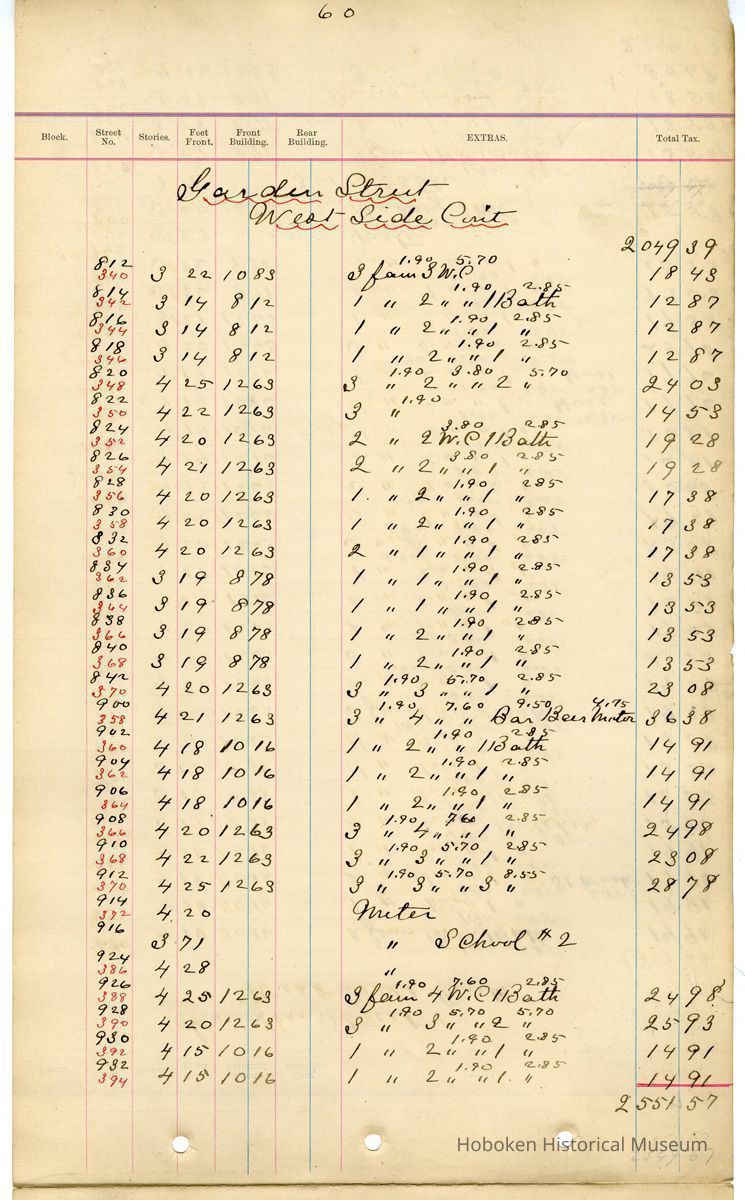 60
Block. Street No. Stories. Feet Front. Front Building. Rear Building. EXTRAS. Total Tax.
Garden Street
West Side Con't
2049 39
1.90 5.70
812 340 3 22 10 83 3 fam 3 W.C 18 43
1.90 2.85
814 342 3 14 8 12 1 " 2 " " 1 Bath 12 87
1.90 2.85
816 344 3 14 8 12 1 " 2 " " 1 " 12 87
1.90 2.85
818 346 3 14 8 12 1 " 2 " " 1 " 12 87
1.90 3.80 5.70
820 348 4 25 12 63 3 " 2 " " 2 " 24 03
1.90
822 350 4 22 12 63 3 " 14 53
3.80 2.85
824 352 4 20 12 63 2 " 2 W.C 1 Bath 19 28
3.80 2.85
826 354 4 21 12 63 2 " 2 " " 1 " 19 28
1.90 2.85
828 356 4 20 12 63 1 " 2 " " 1 " 17 38
1.90 2.85
830 358 4 20 12 63 1 " 2 " " 1 " 17 38
1.90 2.85
832 360 4 20 12 63 2 " 1 " " 1 " 17 38
1.90 2.85
834 362 3 19 8 78 1 " 1 " " 1 " 13 53
1.90 2.85
836 364 3 19 8 78 1 " 1 " " 1 " 13 53
1.90 2.85
838 366 3 19 8 78 1 " 2 " " 1 " 13 53
1.90 2.85
840 368 3 19 8 78 1 " 2 " " 1 " 13 53
1.90 5.70 2.85
842 370 4 20 12 63 3 " 3 " " 1 " 23 08
1.90 7.60 9.50 4.75
900 358 4 21 12 63 3 " 4 " " Bar Beer Motor 36 38
1.90 2.85
902 360 4 18 10 16 1 " 2 " " 1 Bath 14 91
1.90 2.85
904 362 4 18 10 16 1 " 2 " " 1 " 14 91
1.90 2.85
906 364 4 18 10 16 1 " 2 " " 1 " 14 91
1.90 7.60 2.85
908 366 4 20 12 63 3 " 4 " " 1 " 24 98
1.90 5.70 2.85
910 368 4 22 12 63 3 " 3 " " 1 " 23 08
1.90 5.70 8.55
912 370 4 25 12 63 3 " 3 " " 3 " 28 78
914 372 4 20 Meter
916 3 71 " School # 2
924 386 4 28 "
1.90 7.60 2.85
926 388 4 25 12 63 3 fam 4 W.C 1 Bath 24 98
1.90 5.70 5.70
928 390 4 20 12 63 3 " 3 " " 2 " 25 93
1.90 2.85
930 392 4 15 10 16 1 " 2 " " 1 " 14 91
1.90 2.85
932 394 4 15 10 16 1 " 2 " " 1 " 14 91
2551 57
Hoboken Historical Museum